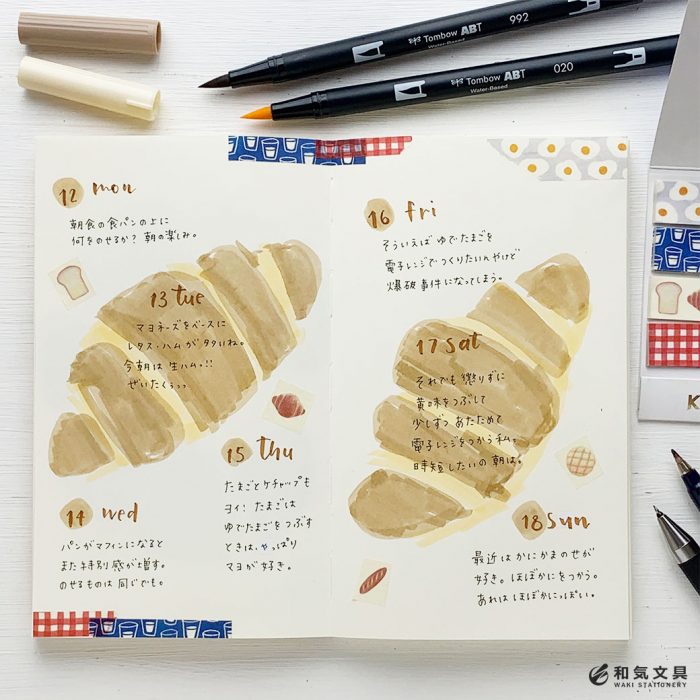 992
Tombow ABT
Water-Based
020
Tombow ABT
Water-Based
12 mon
朝食の食パンの上に
何をのせるか？朝の楽しみ。
13 tue
マヨネーズをベースに
レタス・ハムがタタいね。
今朝は生ハムっ!!
ぜいたくぅっっ
14 wed
パンがマフィンになると
また特別感が増す。
のせるものは同じでも。
15 thu
たまごとケチャップも
ヨイ！たまごは
ゆでたまごをつぶす
ときは、やっぱり
マヨが好き。
16 fri
そういえばゆでたまごを
電子レンジでつくりたいんやけど
爆破事件になってしまう。
17 sat
それでも懲りずに
黄味をつぶして
少しずつあたためて
電子レンジをつかう私。
時短したいの朝は。
18 sun
最近はかにかまのせが
好き。ほぼかにをつかう。
あれはほぼかにっぽい。
K
和気文具
WAKI STATIONERY